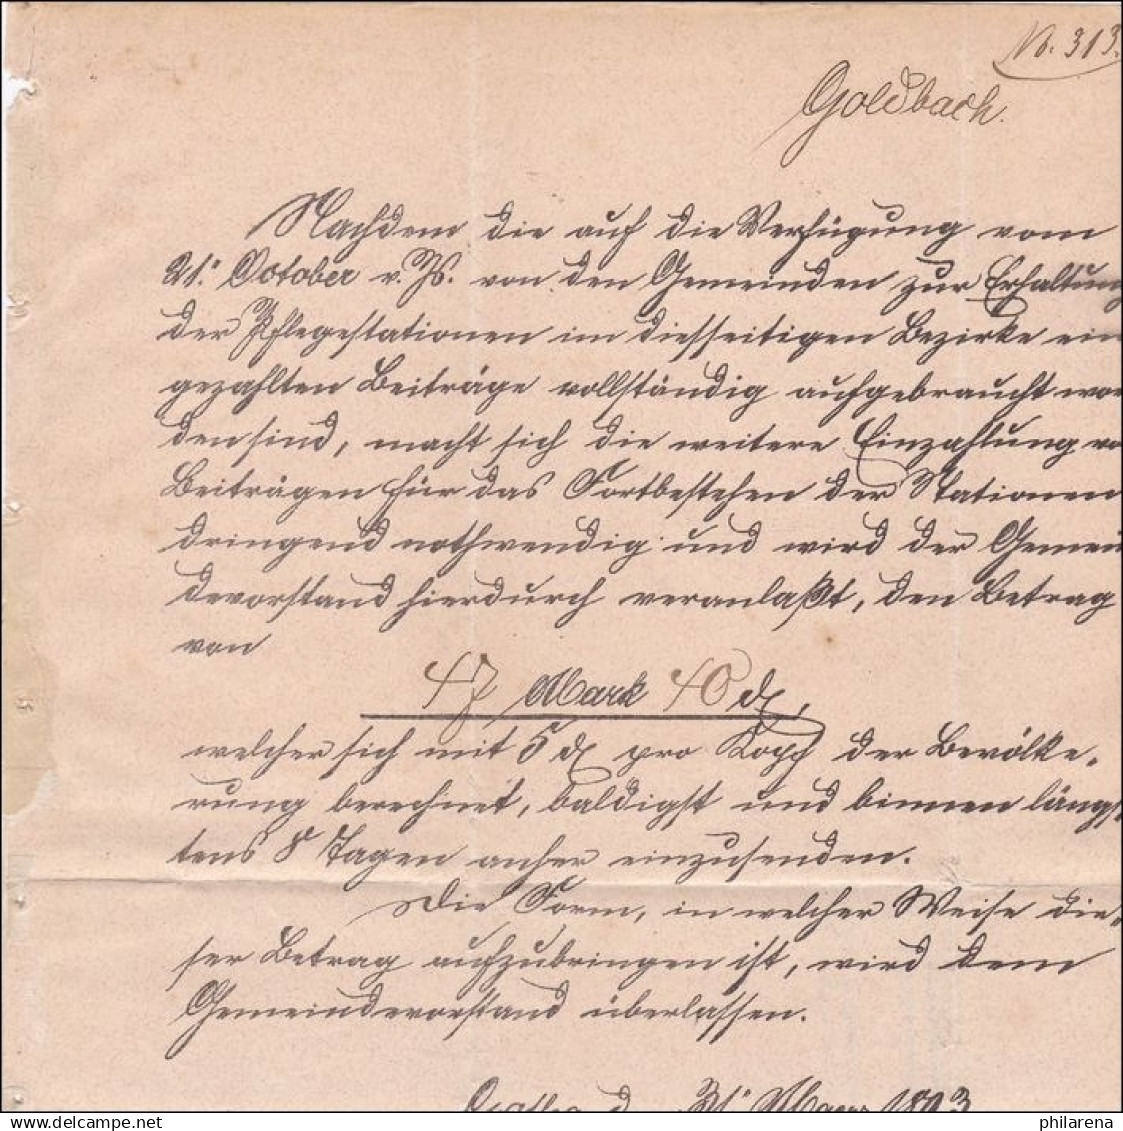 No. 313.
Goldbach.
Nachdem die auf die Verfügung vom
21. October v. Js. von den Gemeinden zur Erhaltung
der Pflegestationen im diesseitigen Bezirke ein
gezahlten Beiträge vollständig aufgebraucht wor
den sind, macht sich die weitere Einzahlung vo
Beiträgen für das Fortbestehen der Stationen
dringend nothwendig und wird der Gemein
devorstand hierdurch veranlaßt, den Betrag
von
47 Mark 40 ₰,
welcher sich mit 5 ₰ pro Kopf der Bevölke-
rung berechnet, baldigst und binnen längs
tens 8 Tagen anher einzusenden.
Die Form, in welcher Weise die-
ser Betrag aufzubringen ist, wird dem
Gemeindevorstand überlassen.
Gotha, d. 31. 1893
philarena.com